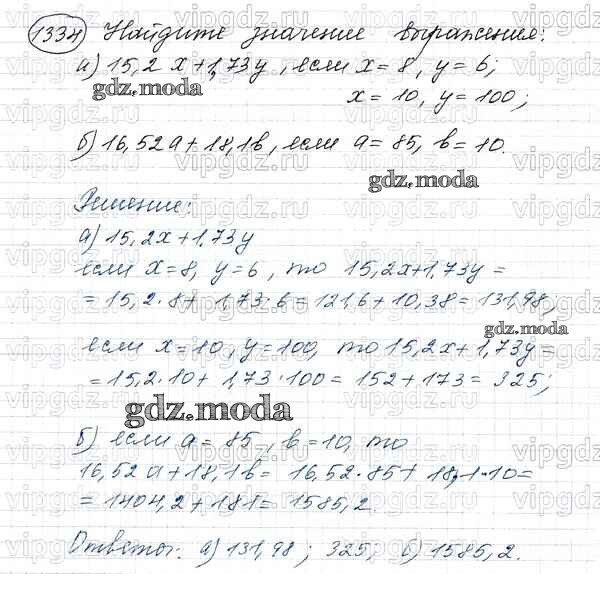 1334 Найдите значение выражения:
а) 15,2x+1,73y, если x=8, y=6;
gdz.moda
x=10, y=100;
б) 16,52a+18,1b, если a=85, b=10.
gdz.moda
Решение:
а) 15,2x+1,73y
если x=8, y=6, то 15,2x+1,73y=
=15,2·8+1,73·6=121,6+10,38=131,98,
gdz.moda
если x=10, y=100, то 15,2x+1,73y=
=15,2·10+1,73·100=152+173=325;
gdz.moda
б) если a=85, b=10, то
16,52a+18,1b=16,52·85+18,1·10=
=1404,2+181=1585,2.
Ответы: а) 131,98; 325, б) 1585,2.